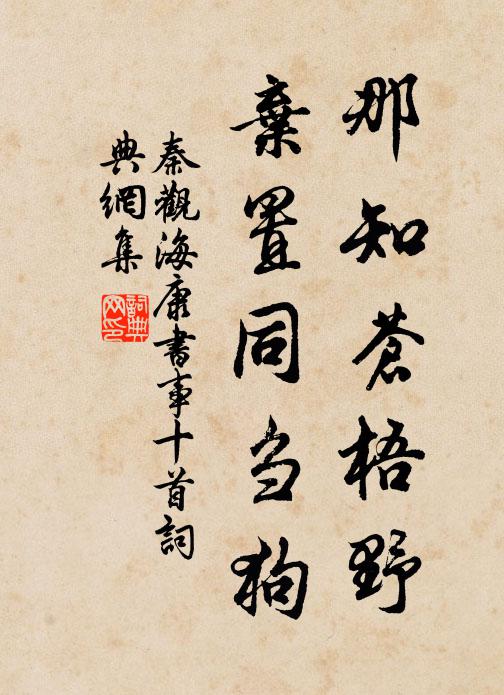 那知蒼梧野
棄置同刍狗
秦觀海康書事十首詞
典網集
詞典網印